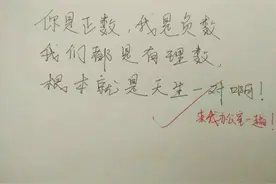 你是正数，我是负数
我们都是有理数，
根本就是天生一对啊！
来我办公室一趟！